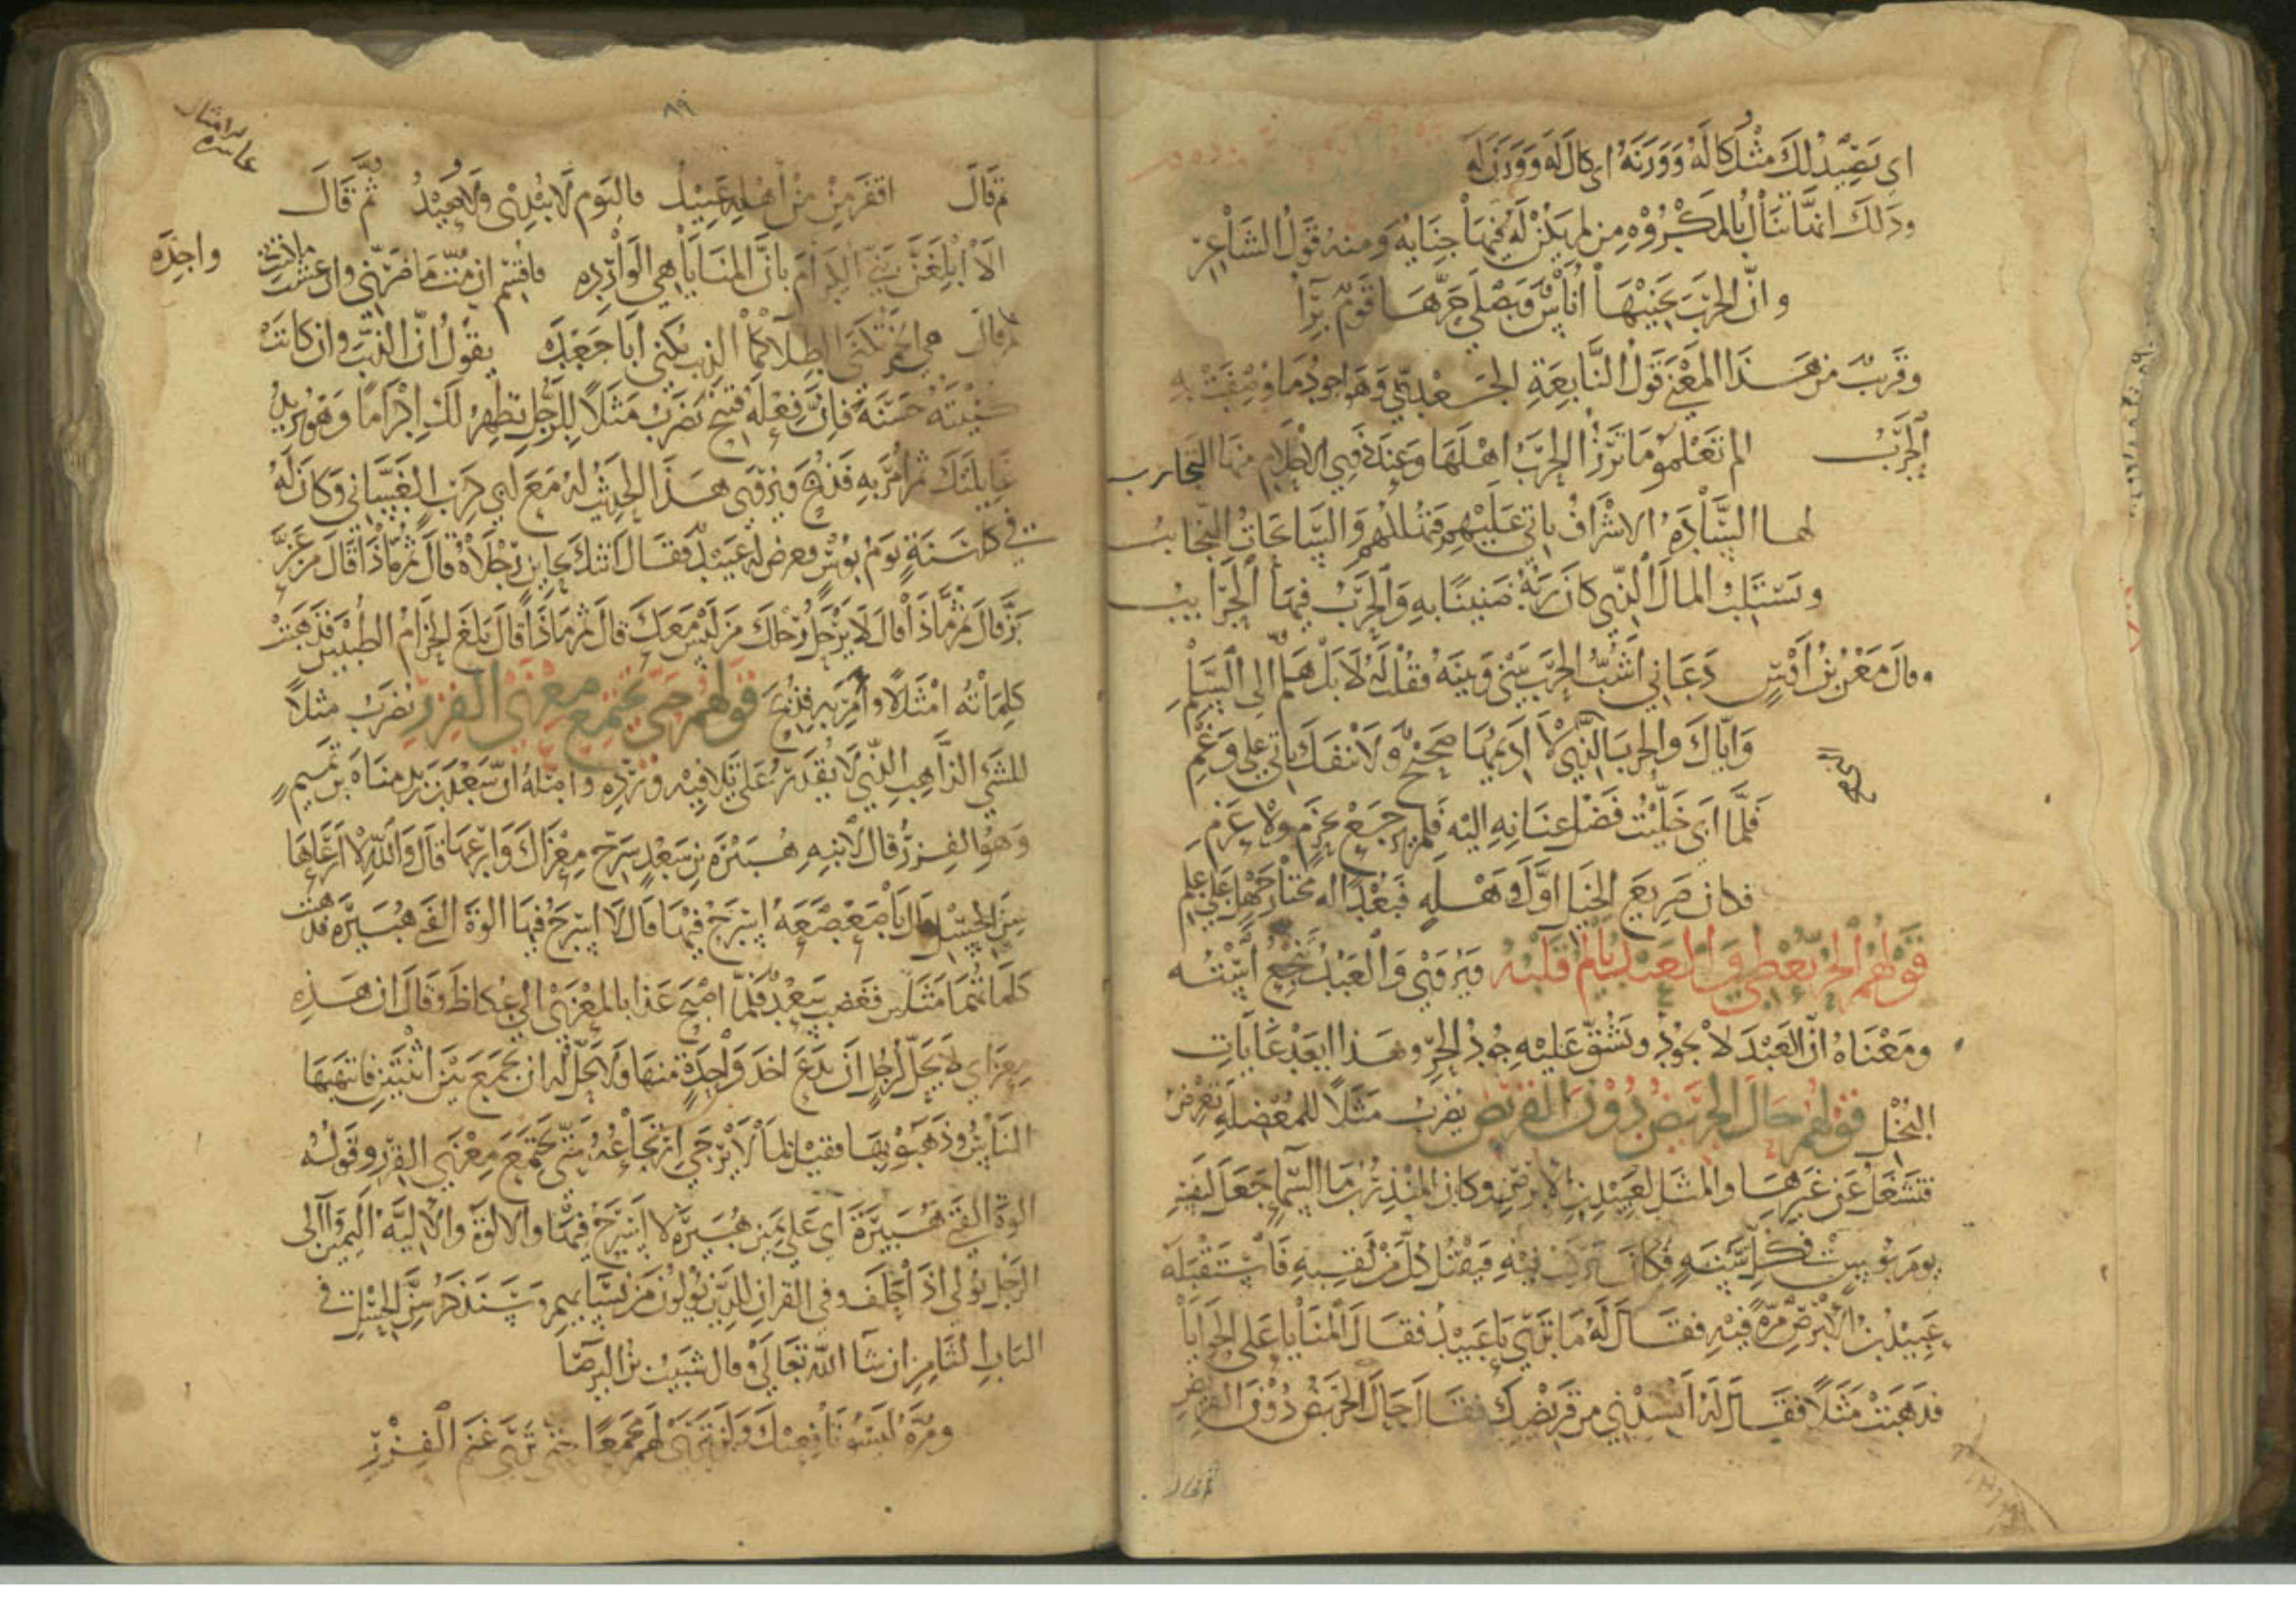 اى تصيد لك مثل كاله ووزنه اى كال له ووزن له
وذلك انما تنال بالمكروه من لم يكن له فيها جناية ومنه قول الشاعر
وانّ الحرب يجنيها اناس ويصلى حرها قوم برآ
وقريب من هذا المعنى قول النابغة الجعدىّ وهو اجود ما وصفت به
الحرب الم تعلمو ما ترزأ الحرب اهلها وعند ذوى الاحلام منها التجارب
لها السادة الاشراف ياتى عليهم فتهلكهم والسابحات النجايب
وتستلب المال الذى كان ربه ضنينا به والحرب فيها الحرايب
وقال معن بن اوس دعانى اشب الحرب بينى وبينه فقلت له لا بل هلم الى السلم
واياك والحرب التى لا اديمها صحيح ولا تنفك ياتى على رغم
فلما ابى خليت فضل عنانه اليه فلم يرجع بحزم ولا عزم
فكان صريع الخيل اول وهلة فبعدا له مختار جهل على علم
قولهم الحر يعطى والعبد يالم قلبه ويروى والعبد ييجع استه
ومعناه انّ العبد لا يجود ويشق عليه جود الحر وهذا ابعد غايات
البخل قولهم حال الجريض دون القريض يضرب مثلا للمعضلة تعرض
فتشغل عن غيرها والمثل لعبيد بن الابرص وكان المنذر بن ما السما جعل لنفسه
يوم بوس فى كل سنة فكان يركب فيه فيقتل كل من لقيه فاستقبله
عبيد بن الابرص مرة فيه فقال له ما ترى يا عبيد فقال المنايا على الحوايا
فذهبت مثلا فقال له انشدنى من قريضك فقال حال الجريض دون القريض
ثم قال
٨٩
ثم قال اقفر من اهله عبيد فاليوم لا يبدى ولا يعيد ثم قال
الا ابلغن بنى اعمامى بان المنايا هى الوارده فاقسم ان مت ما ضرنى وان عشت ما عشت واحده
ثم قال هى الخمر تكنى الطلا كما الذيب يكنى ابا جعده يقول انّ الذيب وان كانت
كنيته حسنة فانّ فعله قبيح يضرب مثلا للرجل يظهر لك اكراما وهو يريد
غايلتك ثم امر به فذبح ويروى هذا الحديث له مع ابى كرب الغسانى وكان له
فى كل سنة يوم بوس فعرض له عبيد فقال اتتك بحاين رجلاه قال ثم ماذا قال من عز
بز قال ثم ماذا قال لا يرحل رحلك من ليس معك قال ثم ماذا قال بلغ الحزام الطبيين فذهبت
كلماته امثالا وامر به فذبح قولهم حتى تجتمع معزى الفزر يضرب مثلا
للشى الذاهب الذى لا يقدر على تلافيه ورده واصله ان سعد بن زيد مناة بن تميم
وهو الفزر قال لابنه هبيرة بن سعد سرح معزاك وارعها قال والله لا ارعاها
سن الحسل قال يا صعصعة اسرح فيها قال لا اسرح فيها الوة الفتى هبيرة فذهبت
كلماتهما مثلين فغضب سعد فلما اصبح غدا بالمعزى الى عكاظ وقال ان هذه
معزاى لا يحل لرجل ان يدع اخذ واحدة منها ولا يحل له ان يجمع بين اثنتين فانتهبها
الناس وذهبو بها فقيل لما لا يرجى ارتجاعه حتى تجتمع معزى الفزر وقوله
الوة الفتى هبيرة اى على يمين هبيرة لا اسرح فيها والالوة والالية اليمين وآلى
الرجل يولى اذا حلف وفى القران للذين يولون من نسايهم وسنذكر سن الحسل فى
الباب الثامن ان شا الله تعالى وقال شبيب بن البرصا
ومرة ليسو نافعيك ولن ترى لهم مجمعا حتى ترى غنم الفزر